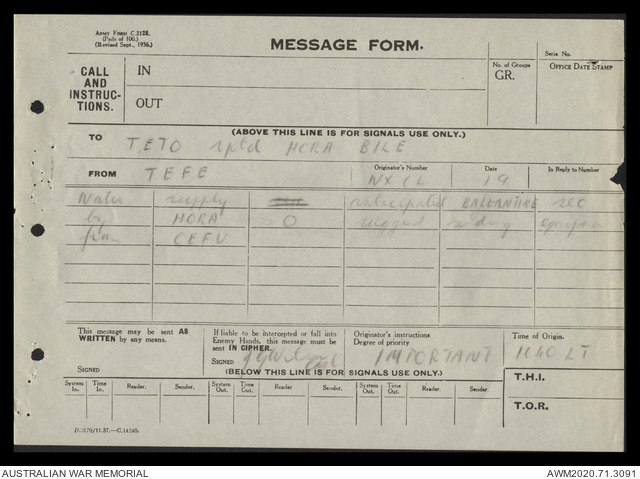 ARMY FORM C.2128.
(Pads of 100.)
(Revised Sept., 1936.)
MESSAGE FORM.
Serial No.
CALL AND INSTRUC-TIONS.
IN
OUT
No. of Groups
GR.
OFFICE DATE STAMP
(ABOVE THIS LINE IS FOR SIGNALS USE ONLY.)
TO TETO rptd HORA BILE
FROM TEFE
Originator's Number
Date 19
In Reply to Number
Water supply anticipated BALLANTINE sec
by HORA O suggest sending
from CEFU
This message may be sent AS WRITTEN by any means.
SIGNED
If liable to be intercepted or fall into Enemy Hands, this message must be sent IN CIPHER.
SIGNED
Originator's instructions
Degree of priority
IMPORTANT
Time of Origin.
1640 LT
(BELOW THIS LINE IS FOR SIGNALS USE ONLY.)
T.H.I.
T.O.R.
System In. Time In. Reader. Sender. System Out. Time Out. Reader. Sender. System Out. Time Out. Reader. Sender.
AUSTRALIAN WAR MEMORIAL
AWM2020.71.3091